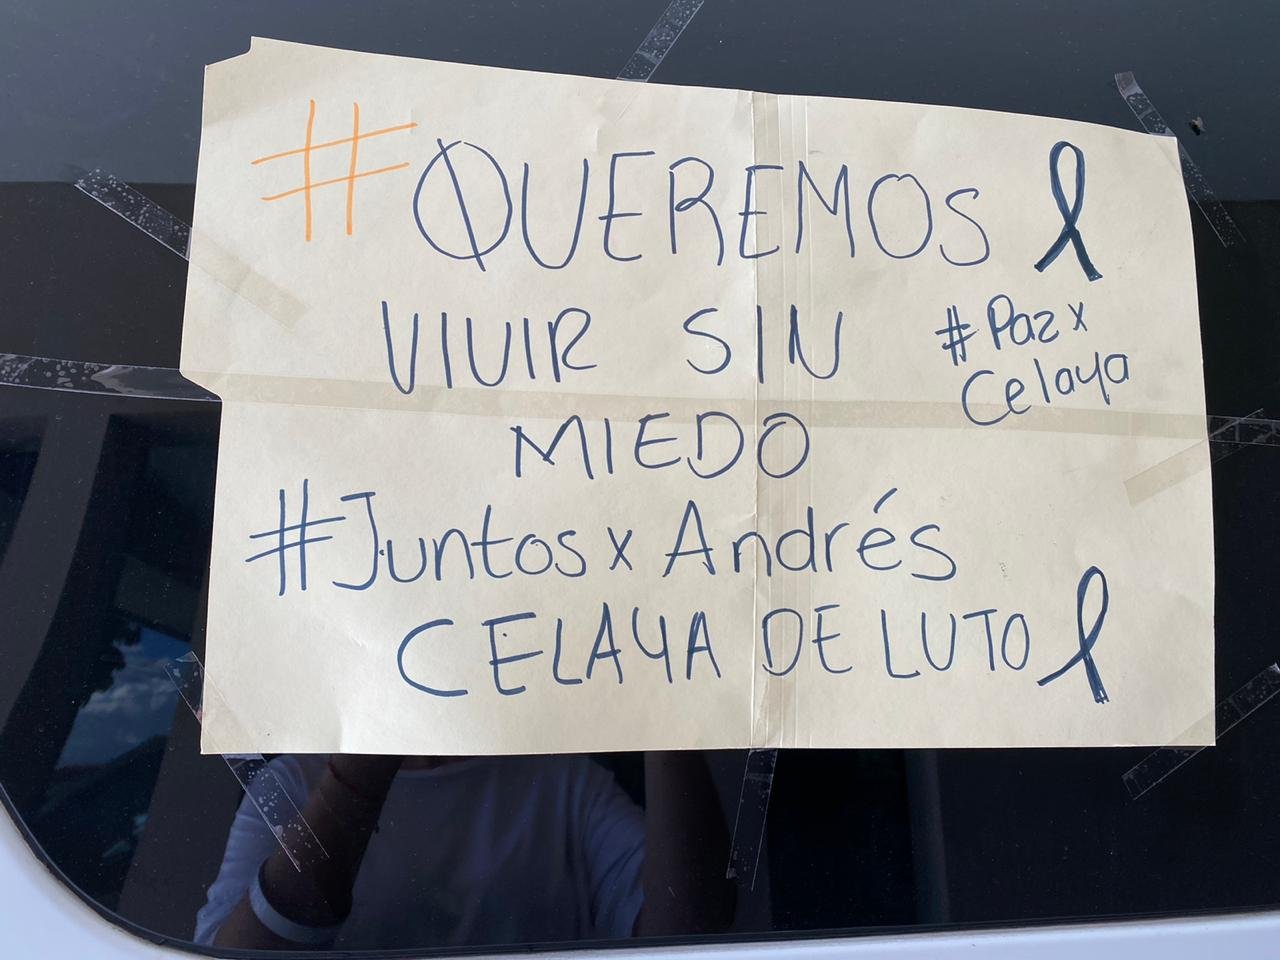 #QUEREMOS
VIVIR SIN
#Paz x
Celaya
MIEDO
#Juntos x Andrés
CELAYA DE LUTO